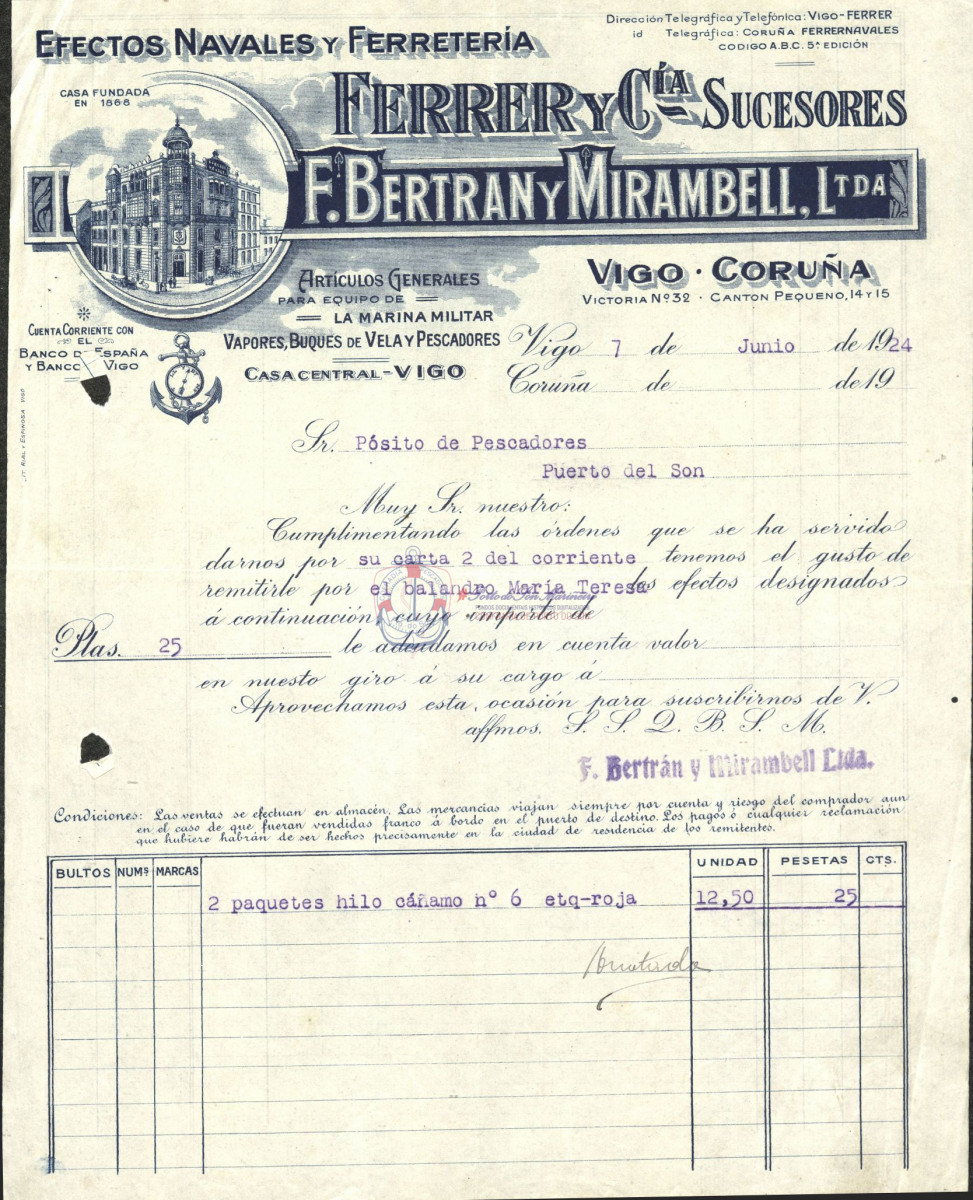 Dirección Telegráfica y Telefónica: VIGO-FERRER
id Telegráfica: CORUÑA FERRERNAVALES
CODIGO A.B.C. 5ª EDICIÓN
EFECTOS NAVALES Y FERRETERÍA
CASA FUNDADA
EN 1868
FERRER Y CÍA SUCESORES
F. BERTRAN Y MIRAMBELL, LTDA
VIGO · CORUÑA
VICTORIA Nº 32 · CANTON PEQUENO, 14 Y 15
ARTÍCULOS GENERALES
PARA EQUIPO DE
LA MARINA MILITAR
VAPORES, BUQUES DE VELA Y PESCADORES
CASA CENTRAL - VIGO
CUENTA CORRIENTE CON
EL
BANCO DE ESPAÑA
Y BANCO VIGO
Vigo 7 de Junio de 1924
Coruña de de 19
Sr. Pósito de Pescadores
Puerto del Son
Muy Sr. nuestro:
Cumplimentando las órdenes que se ha servido
darnos por su carta 2 del corriente tenemos el gusto de
remitirle por el balandro María Teresa los efectos designados
á continuación, cuyo importe de
Ptas. 25 le adeudamos en cuenta valor
en nuesto giro á su cargo á
Aprovechamos esta, ocasión para suscribirnos de V.
affmos. S. S. Q. B. S. M.
F. Bertrán y Mirambell Ltda.
Condiciones: Las ventas se efectuan en almacén. Las mercancias viajan siempre por cuenta y riesgo del comprador aun
en el caso de que fueran vendidas franco á bordo en el puerto de destino. Los pagos ó cualquier reclamación
que hubiere habrán de ser hechos precisamente en la ciudad de residencia de los remitentes.
BULTOS NUMS MARCAS UNIDAD PESETAS CTS.
2 paquetes hilo cáñamo nº 6 etq-roja 12,50 25